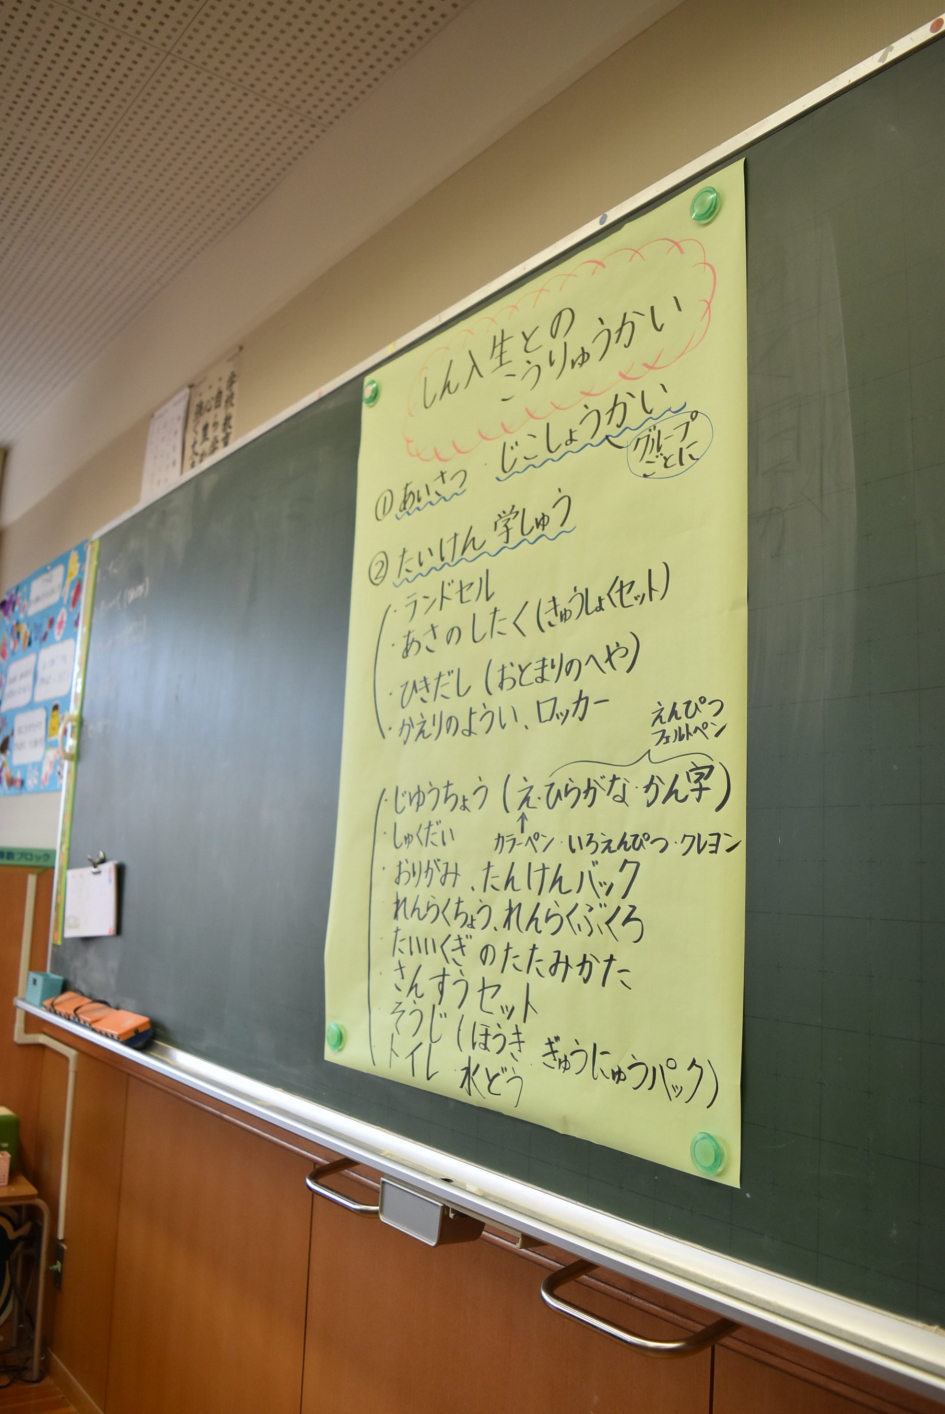 しん入生との
こうりゅうかい
①あいさつ・じこしょうかい
グループ
ごとに
②たいけん学しゅう
・ランドセル
・あさのしたく(きゅうしょくセット)
・ひきだし(おとまりのへや)
・かえりのようい、ロッカー
えんぴつ
フェルトペン
・じゆうちょう(え・ひらがな・かん字)
↑
カラーペン・いろえんぴつ・クレヨン
・しゅくだい
・おりがみ、たんけんバック
・れんらくちょう、れんらくぶくろ
・たいいくぎのたたみかた
・さんすうセット
・そうじ(ほうき・ぎゅうにゅうパック)
・トイレ・水どう
ブロック